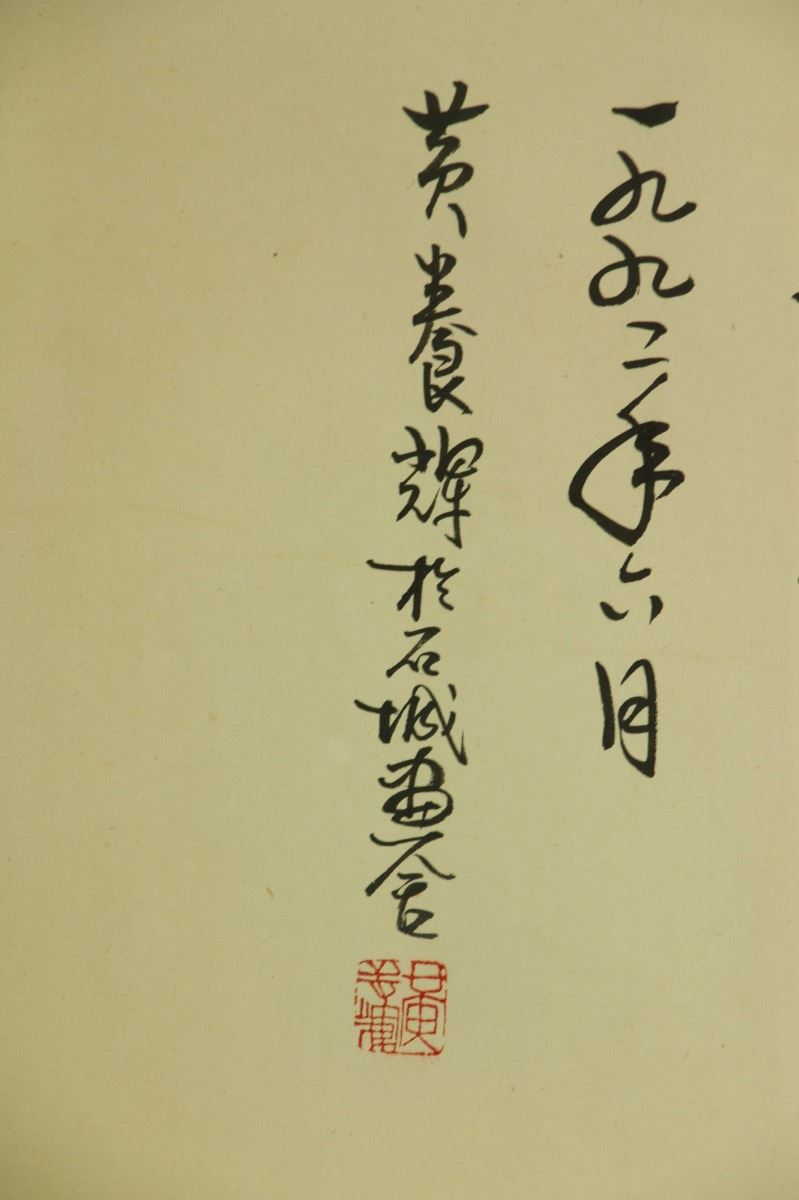 一九九二年六月
黄養輝於石城畫舍
黄養輝